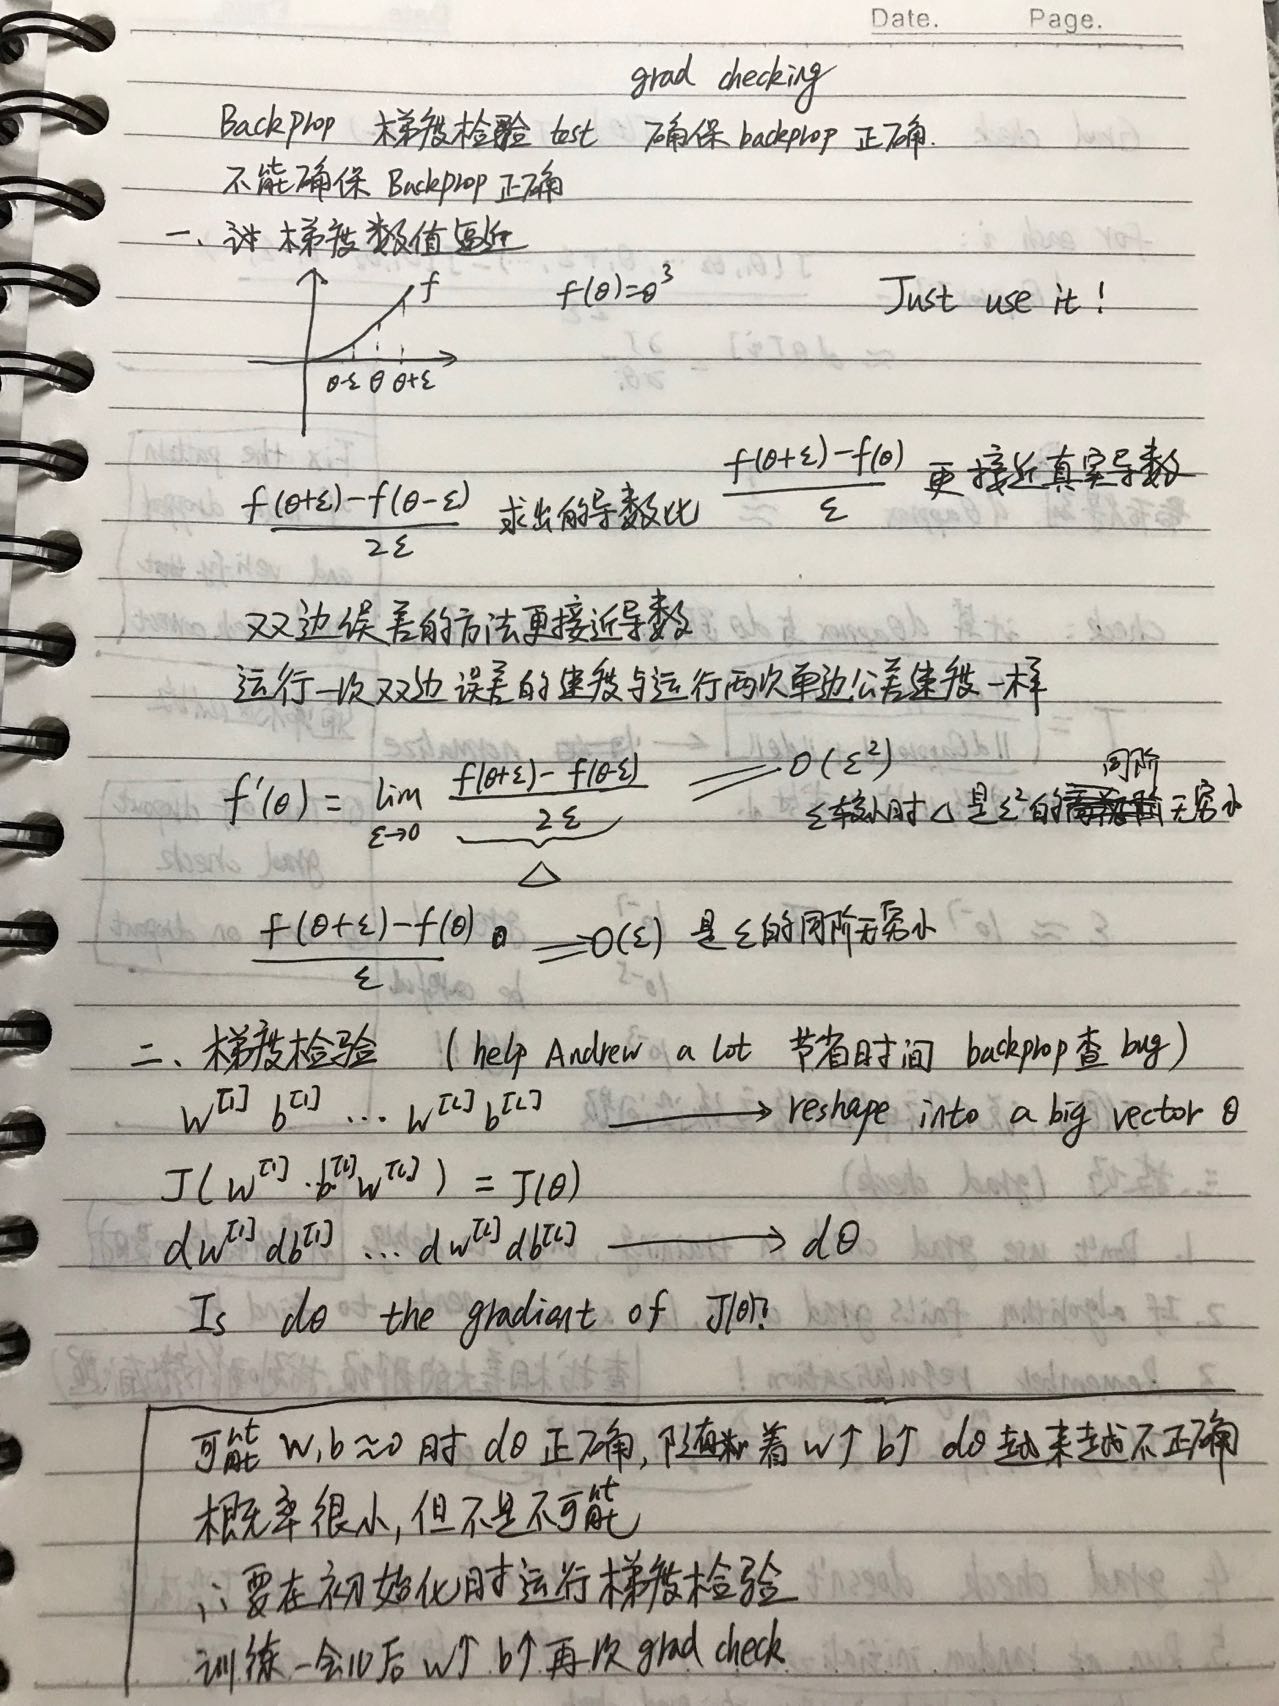 Date. Page.
grad checking
Backprop 梯度检验 test 确保 backprop 正确.
不能确保 Backprop 正确
一、计 梯度数值逼近
f
f(θ)=θ³
Just use it!
θ-ε θ θ+ε
(f(θ+ε)-f(θ-ε))/2ε 求出的导数比 (f(θ+ε)-f(θ))/ε 更接近真实导数
双边误差的方法更接近导数
运行一次双边误差的速度与运行两次单边公差速度一样
f'(θ) = lim ε→0 (f(θ+ε)-f(θ-ε))/2ε O(ε²)
△
ε较小时△是ε²的同阶无穷小
(f(θ+ε)-f(θ))/ε O(ε) 是ε的同阶无穷小
二、梯度检验 (help Andrew a lot 节省时间 backprop 查 bug)
W^[1] b^[1] ... W^[L] b^[L] → reshape into a big vector θ
J(W^[1]. b^[1] W^[L]) = J(θ)
dW^[1] db^[1] ... dW^[L] db^[L] → dθ
Is dθ the gradient of J(θ)?
可能 w,b≈0 时 dθ 正确, 随着 w↑ b↑ dθ 越来越不正确
概率很小, 但不是不可能
∴要在初始化时运行梯度检验
训练一会儿后 w↑ b↑ 再次 grad check